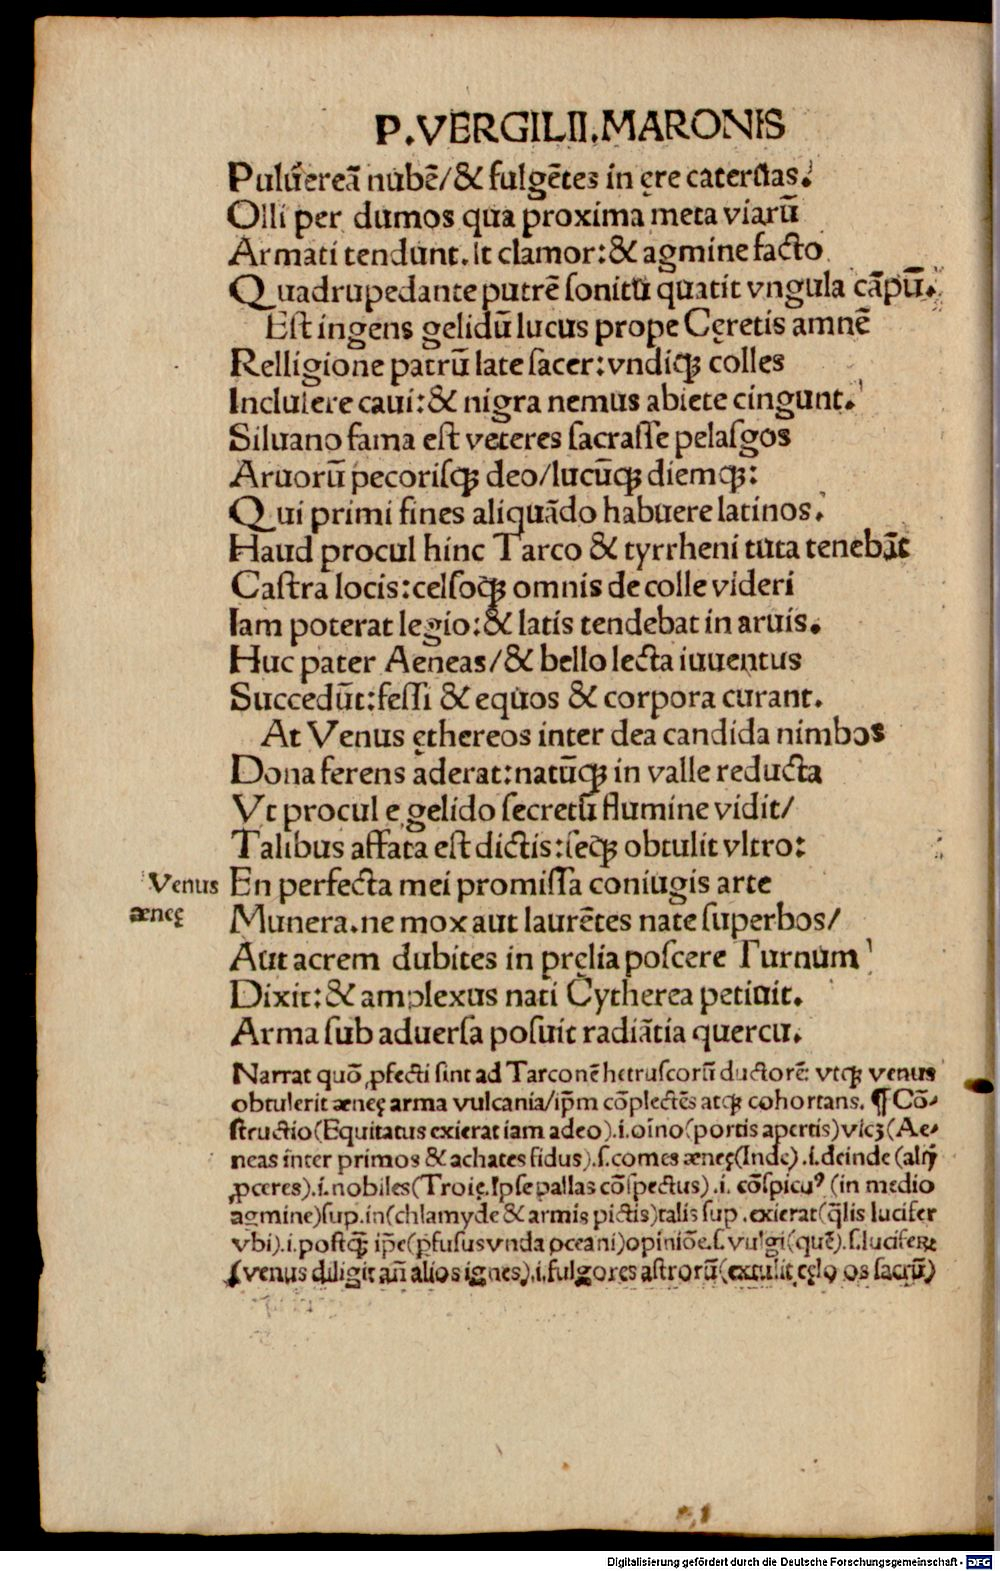 P.VERGILII.MARONIS
Pulvereã nubẽ/& fulgẽtes in ęre catervas.
Olli per dumos qua proxima meta viarũ
Armati tendunt. It clamor: & agmine facto
Quadrupedante putrẽ sonitu quatit vngula cãpũ.
Est ingens gelidũ lucus prope Cęretis amnẽ
Relligione patrũ late sacer: vndiqꝫ colles
Inclusere caui: & nigra nemus abiete cingunt.
Siluano fama est veteres sacrasse pelasgos
Aruorũ pecorisqꝫ deo/lucũqꝫ diemqꝫ:
Qui primi fines aliquãdo habuere latinos.
Haud procul hinc Tarco & tyrrheni tuta tenebãt
Castra locis: celsoqꝫ omnis de colle videri
Iam poterat legio: & latis tendebat in aruis.
Huc pater Aeneas/& bello lecta iuuentus
Succedũt: fessi & equos & corpora curant.
At Venus ęthereos inter dea candida nimbos
Dona ferens aderat: natũqꝫ in valle reducta
Vt procul e gelido secretũ flumine vidit/
Talibus affata est dictis: seqꝫ obtulit vltro:
Venus En perfecta mei promissa coniugis arte
æneę Munera. ne mox aut laurẽtes nate superbos/
Aut acrem dubites in pręlia poscere Turnum
Dixit: & amplexus nati Cytherea petiuit.
Arma sub aduersa posuit radiãtia quercu.
Narrat quõ ꝓfecti sint ad Tarconẽ hetruscorũ ductorẽ: vtqꝫ venus
obtulerit æneę arma vulcania/ip̃m cõplectẽs atqꝫ cohortans. ¶ Cõ-
structio(Equitatus exierat iam adeo).i.oĩno(portis apertis)vicꝫ(Ae-
neas inter primos & achates fidus).s.comes æneę(Inde).i.deinde(alij
ꝓceres).i.nobiles(Troię.Ipse pallas cõspectus).i. cõspicuꝰ (in medio
agmine)sup.in(chlamyde & armis pictis)talis sup.exierat(q̃lis lucifer
vbi).i.postqꝫ̃ ip̃e(ꝑfusus vnda oceani)opiniõe.s.vulgi(quẽ).s.luciferũ
(venus diligit añ alios ignes).i.fulgores astrorũ(extulit cęlo os sacrũ)
Digitalisierung gefördert durch die Deutsche Forschungsgemeinschaft - DFG